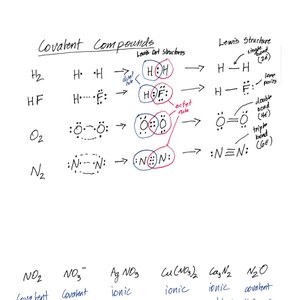 Covalent Compounds
Lewis Dot Structures
Lewis Structure
single bond (2e)
H₂ H · · H → H : H → H — H
duet rule
HF H · · F → H : F → H — F
lone pairs
octet rule
O₂ O O → O :: O → O = O
double bond (4e)
N₂ N N → N ::: N → N ≡ N
triple bond (6e)
NO₂ NO₃⁻ AgNO₃ Cu(NO₃)₂ Ca₃N₂ N₂O
covalent covalent ionic ionic ionic covalent